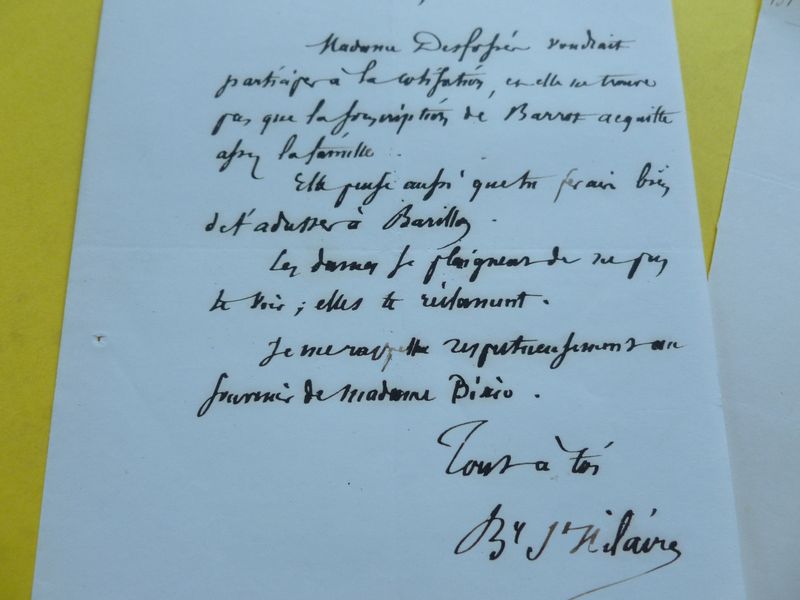 Madame Desfossés voudrait
participer à la cotisation, et elle ne trouve
pas que la souscription de Barrot acquitte
assez la famille.
Elle pense aussi que tu ferais bien
de t'adresser à Barillon.
Ces dames se plaignent de ne pas
te voir; elles te réclament.
Je me rappelle respectueusement au
souvenir de Madame Bixio.
Tout à toi
By St Hilaire